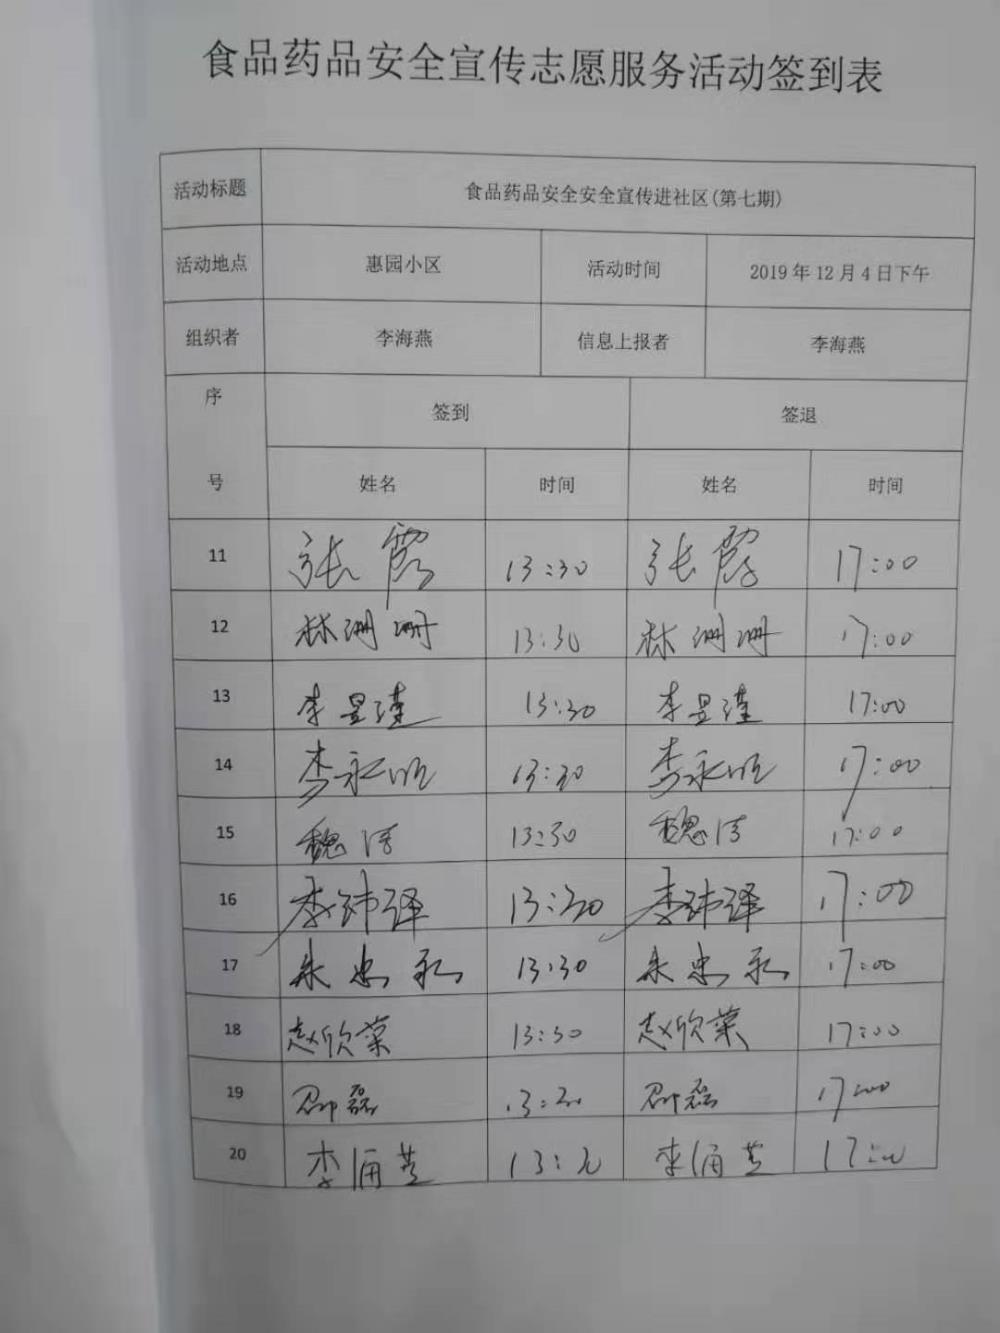 食品药品安全宣传志愿服务活动签到表
活动标题 食品药品安全安全宣传进社区(第七期)
活动地点 惠园小区 活动时间 2019年12月4日下午
组织者 李海燕 信息上报者 李海燕
序号 签到 签退
姓名 时间 姓名 时间
11 张霞 13:30 张霞 17:00
12 林珊珊 13:30 林珊珊 17:00
13 李昱瑾 13:30 李昱瑾 17:00
14 李永 13:30 李永 17:00
15 魏 13:30 魏 17:00
16 李玮译 13:30 李玮译 17:00
17 朱忠 13:30 朱忠 17:00
18 赵欣荣 13:30 赵欣荣 17:00
19 磊 13:30 磊 17:00
20 李 13:30 李 17:00